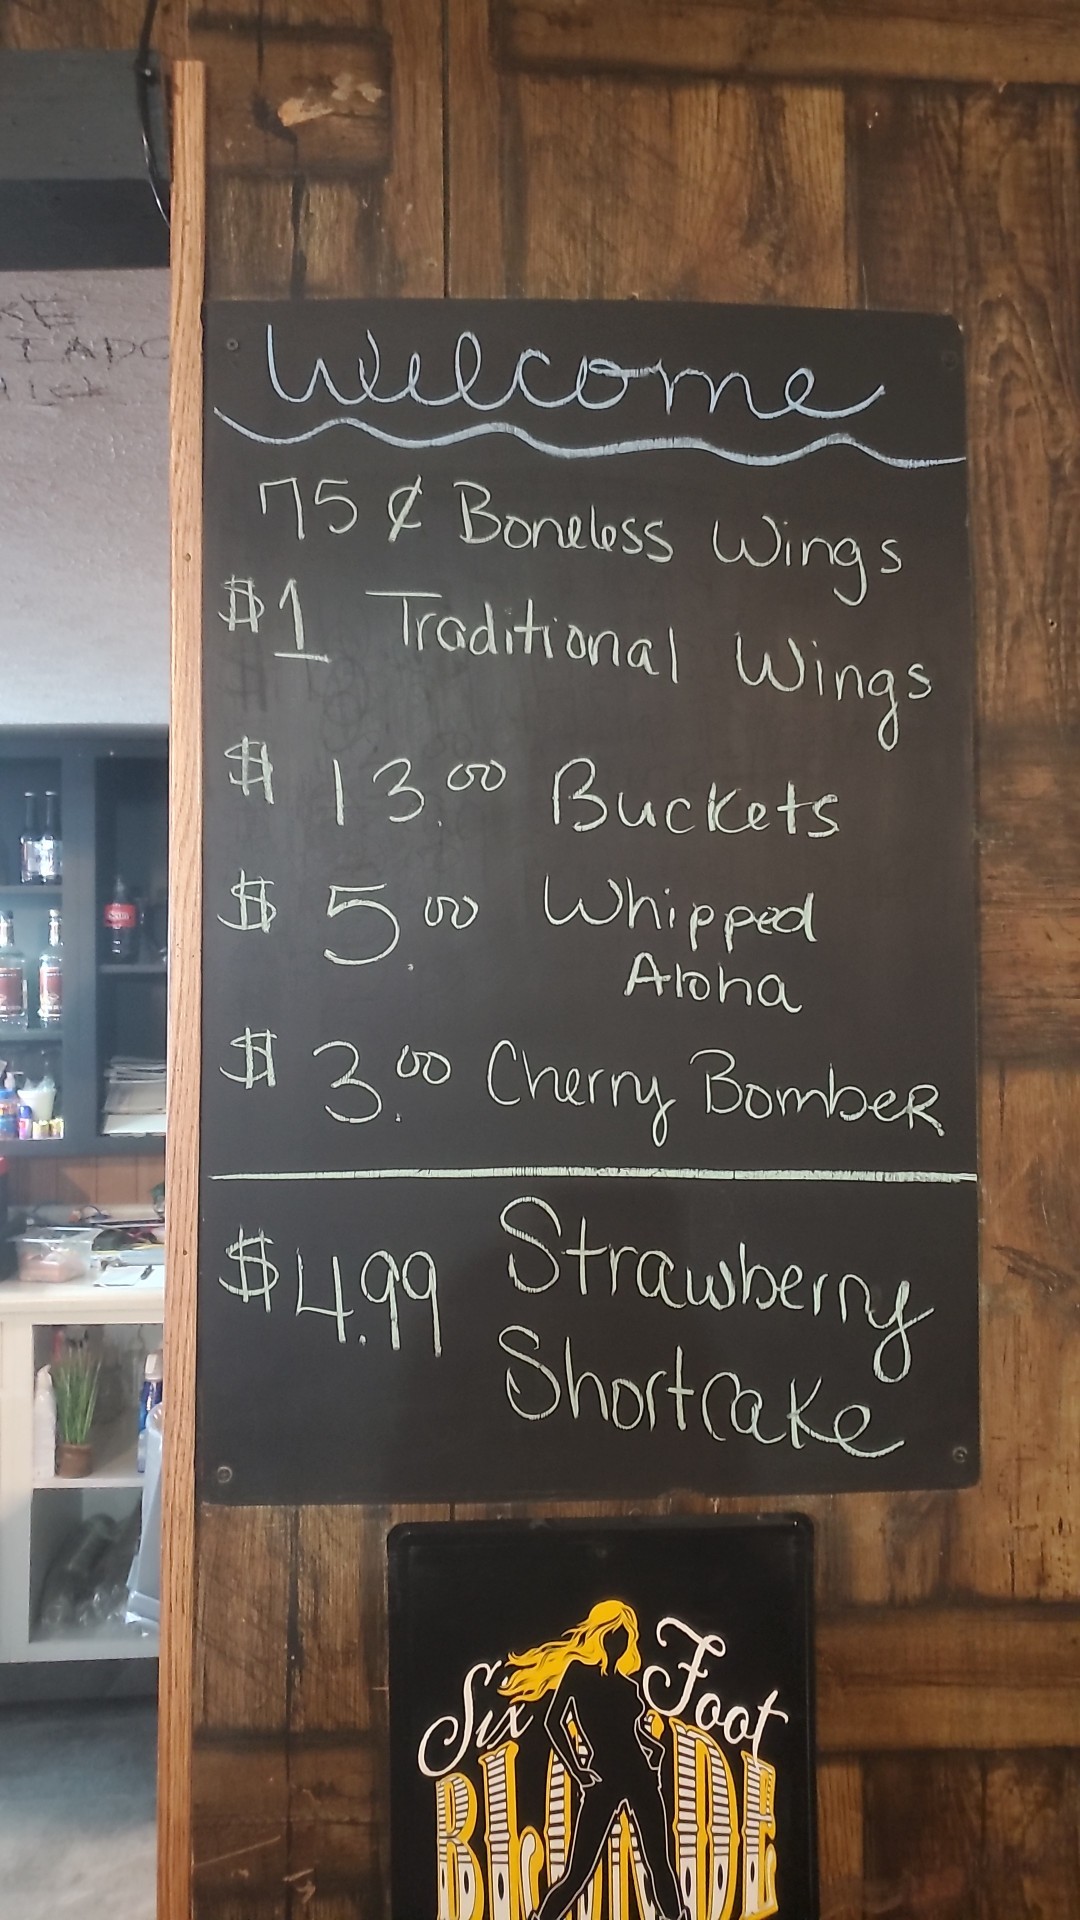 Welcome
75¢ Boneless Wings
$1 Traditional Wings
$13.00 Buckets
$5.00 Whipped
Aloha
$3.00 Cherry Bomber
$4.99 Strawberry
Shortcake
Six Foot
BLONDE